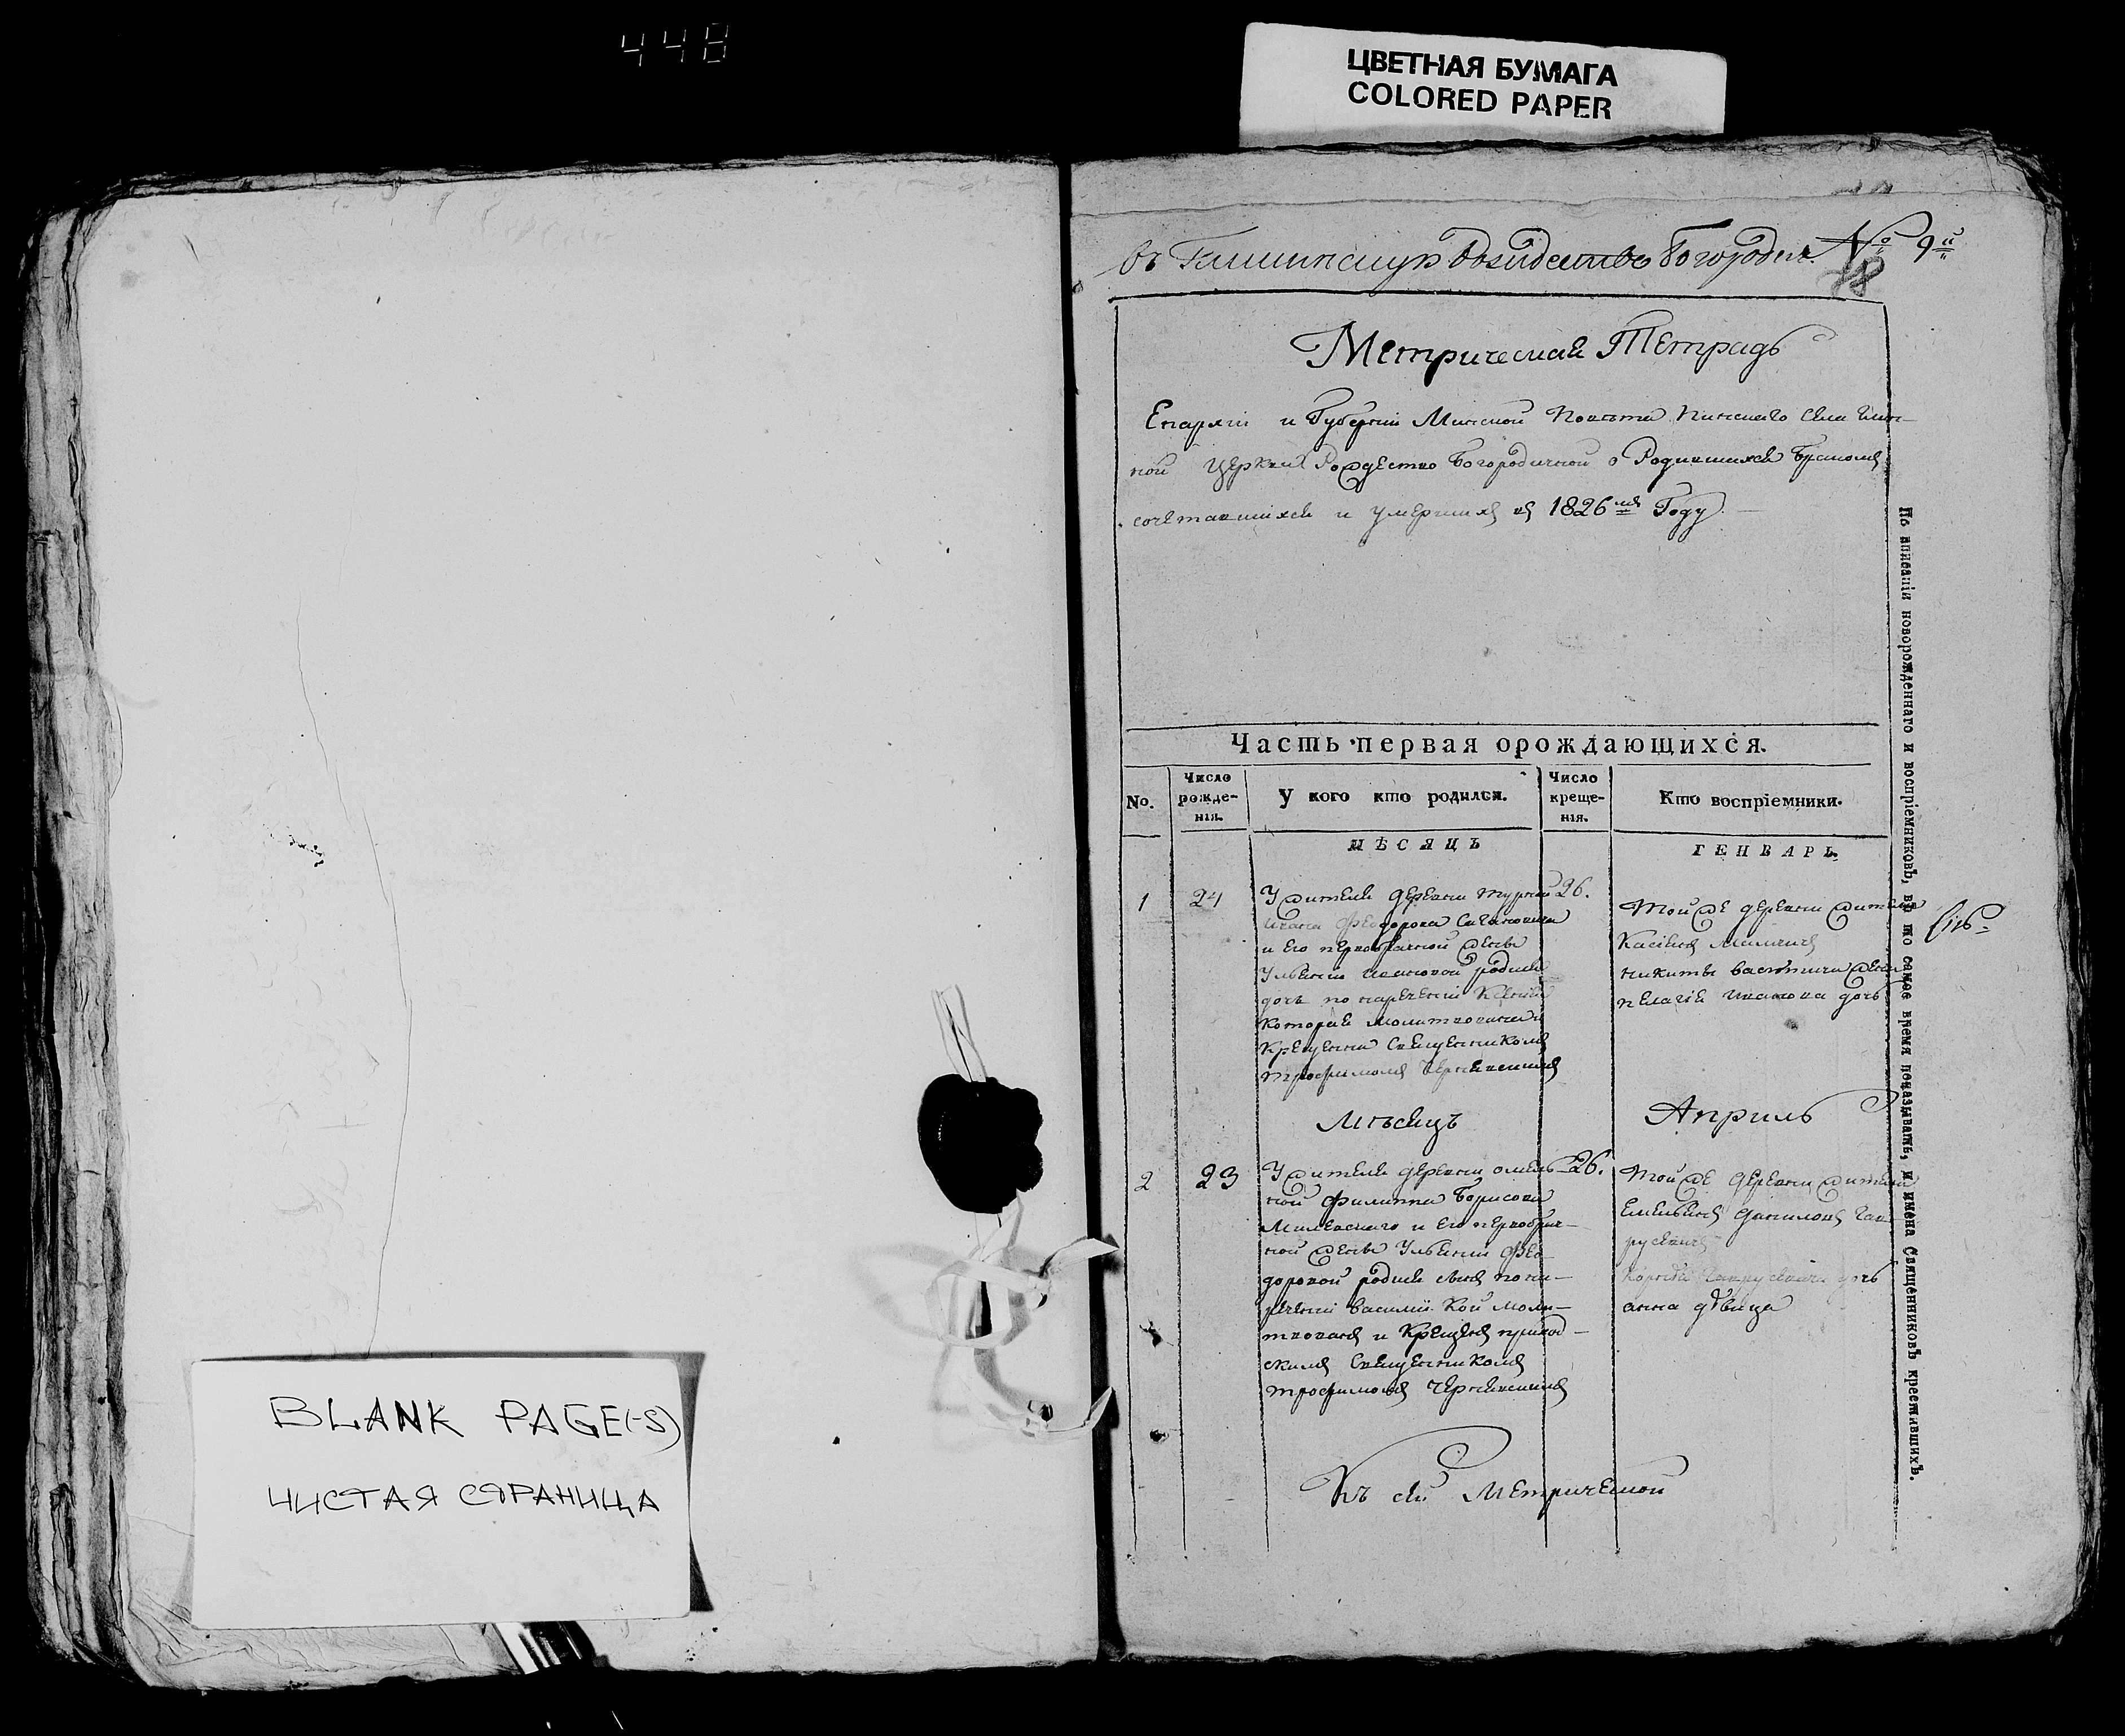 448
ЦВЕТНАЯ БУМАГА
COLORED PAPER
въ Богородич. № 9й
78
Метрическая Тетрадь
Епархіи и Губерніи Минской Повѣта Пинскаго Села Глин-
ной Церкви Рождество Богородичной о Родившихся Бракомъ
сочетавшихся и умершихъ въ 1826мъ Году
Часть первая орождающихся.
No.
Число рожде-нія.
У кого кто родился.
Число креще-нія.
Кто воспріемники.
МѢСЯЦЪ
ГЕНВАРЬ.
1
24
У жителя деревни
Ивана Феодорова
и Его первобрачной жены
Ульяніи Ивановой родись
дочь по нареченіи
которая молитвована и
Крещенна Священникомъ
трофимомъ Чернявскимъ
26.
Той же деревни житель
никиты жена
пелагія Иванова дочь
Мѣсяцъ
Априль
2
23
У жителя деревни омель-
ной Филиппа Борисова
Милевскаго и Его первобрач-
ной жены Ульяніи Фео-
доровой родися сынъ по на-
реченіи василій Кой моли-
твованъ и Крещенъ приход-
скимъ Священникомъ
трофимомъ Чернявскимъ
26.
Той же деревни житель
Емельянъ даниловъ Гав-
русевичъ
Гаврусевича дочь
анна дѣвица
Къ сей Метрической
По вписаніи новорожденнаго и воспріемниковъ, въ то самое время показывать, и имена Священниковъ крестившихъ.
BLANK PAGE(-S)
ЧИСТАЯ СТРАНИЦА